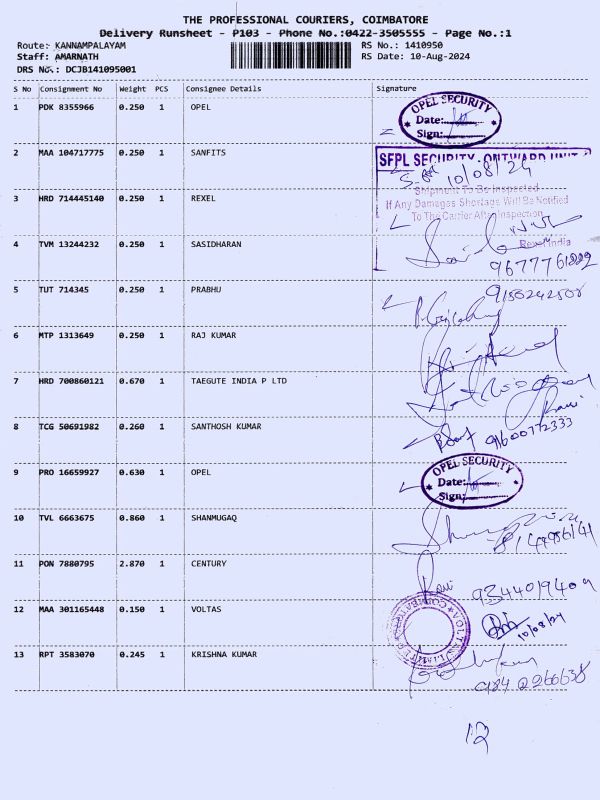 THE PROFESSIONAL COURIERS, COIMBATORE
Delivery Runsheet - P103 - Phone No.:0422-3505555 - Page No.:1
Route: KANNAMPALAYAM RS No.: 1410950
Staff: AMARNATH RS Date: 10-Aug-2024
DRS No.: DCJB141095001
S No Consignment No Weight PCS Consignee Details Signature
1 PDK 8355966 0.250 1 OPEL
OPEL SECURITY
Date:
Sign:
2 MAA 104717775 0.250 1 SANFITS
SFPL SECURITY
10/08/24
Shipment To Be Inspected
If Any Damages Shortage Will Be Notified
To The Carrier After Inspection
3 HRD 714445140 0.250 1 REXEL
Rexel India
4 TVM 13244232 0.250 1 SASIDHARAN
5 TUT 714345 0.250 1 PRABHU
6 MTP 1313649 0.250 1 RAJ KUMAR
7 HRD 700860121 0.670 1 TAEGUTE INDIA P LTD
8 TCG 50691982 0.260 1 SANTHOSH KUMAR
9 PRO 16659927 0.630 1 OPEL
OPEL SECURITY
Date:
Sign:
10 TVL 6663675 0.860 1 SHANMUGAQ
11 PON 7880795 2.870 1 CENTURY
12 MAA 301165448 0.150 1 VOLTAS
VOLTAS LIMITED
10/08/24
13 RPT 3583070 0.245 1 KRISHNA KUMAR
12